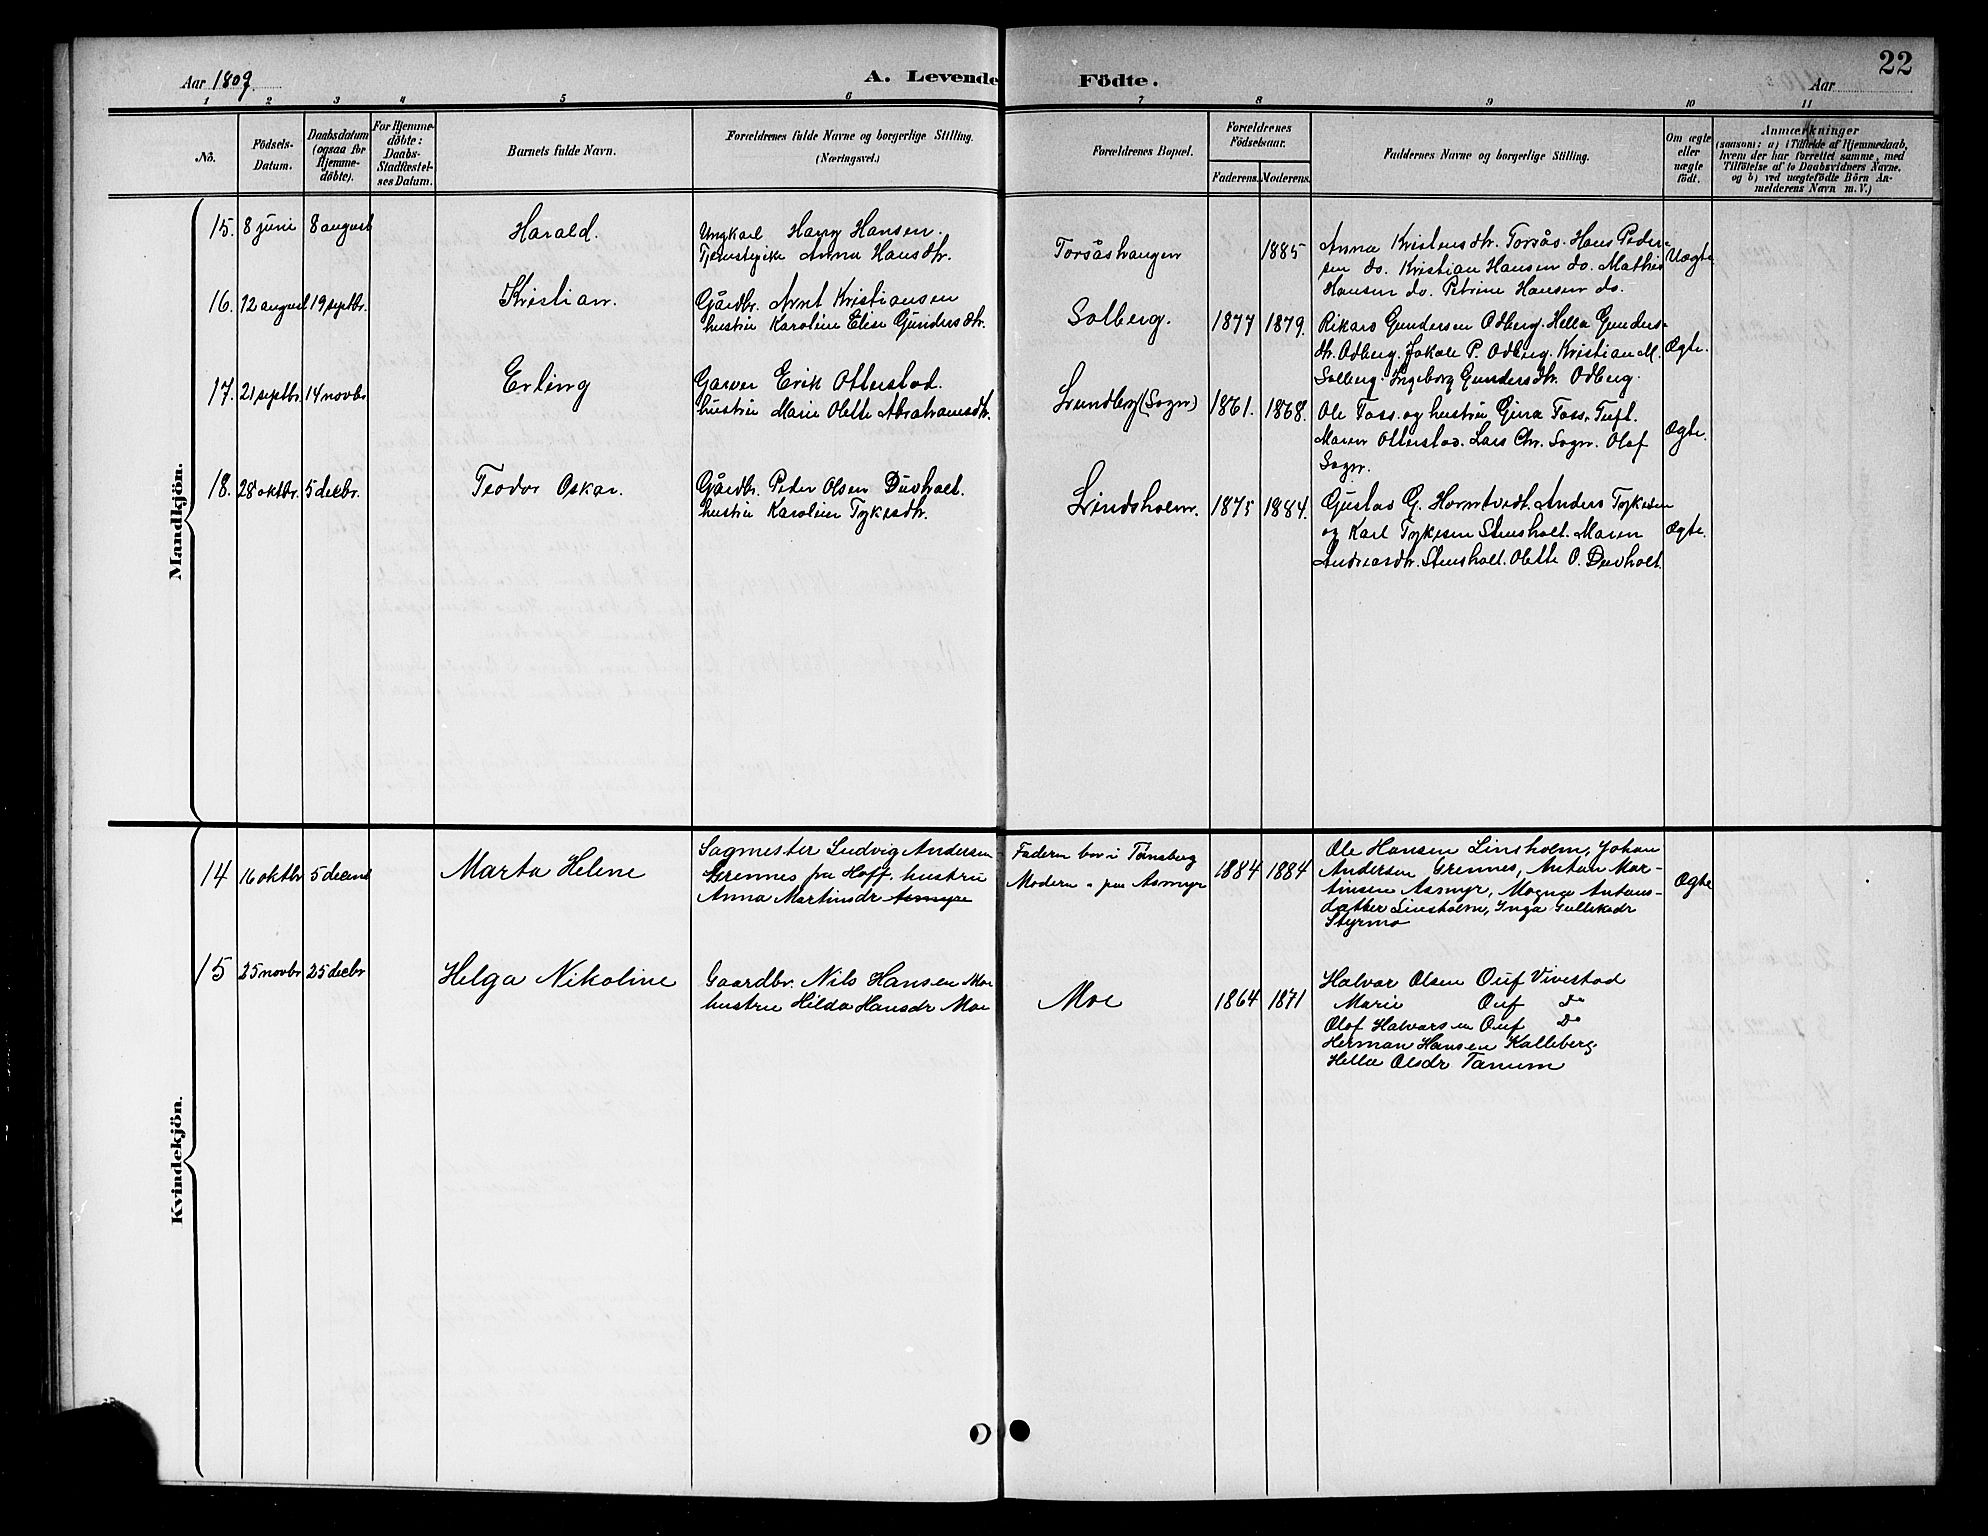 22
Aar 1809.
A. Levende Födte.
Aar
1 2 3 4 5 6 7 8 9 10 11
No.
Födsels-Datum.
Daabsdatum (ogsaa for Hjemme-döbte).
For Hjemme-döbte: Daabs-Stadfæstel-ses Datum.
Barnets fulde Navn.
Forældrenes fulde Navne og borgerlige Stilling.
(Næringsvei.)
Forældrenes Bopæl.
Forældrenes Födselsaar.
Faderens. Moderens.
Faddernes Navne og borgerlige Stilling.
Om ægte eller uægte födt.
Anmærkninger
(saasom: a) i Tilfælde af Hjemmedaab,
hvem der har forrettet samme, med
Tilföielse af to Daabsvidners Navne,
og b) ved uægtefödte Börn An-
melderens Navn m. V.)
Mandkjön.
15. 8 juni 8 august Harald.
Ungkarl Harry Hansen.
Tjenestepike Anna Hansdtr.
Torsåshaugen 1885
Anna Kristensdtr. Torsås. Hans Peder-
sen do. Kristian Hansen do. Mathis
Hansen do. Petrine Hansen do.
Uægte
16. 12 august 19 septbr. Kristian.
Gårdbr. Arnt Kristiansen
hustru Karoline Elise Gundersdtr.
Solberg. 1877 1879.
Rikard Gundersen Odberg. Hella Gunders-
dtr. Odberg. Jakob P. Odberg. Kristian M.
Solberg. Ingeborg Gundersdtr. Odberg.
Ægte.
17. 21 septbr. 14 novbr. Erling
Garver Erik Otterstad.
hustru Marie Olette Abrahamsdtr.
Lundberg (Sogn) 1861. 1868.
Ole Foss. og hustru Gina Foss. Tuft.
Maren Otterstad. Lars Chr. Sogn. Olaf
Sogn.
Ægte.
18. 28 oktbr. 5 decbr. Teodor Oskar.
Gårdbr. Peder Olsen Duvholt.
hustru Karoline Tykesdtr.
Lindsholm. 1875 1884.
Gustav G. Horntvedt. Anders Tykesen
og Karl Tykesen Stensholt. Maren
Andreasdtr. Stensholt. Olette O. Duvholt.
Ægte.
Kvindekjön.
14 16 oktbr 5 decmb Marta Helene
Sagmester Ludvig Andersen
Grennes fra Hoff. hustru
Anna Martinsdr Asmyr
Fadern bor i Tønsberg
Modern " paa Asmyr
1884 1884
Ole Hansen Linsholm, Johan
Andersen Grennes, Anton Mar-
tinsen Asmyr, Magna Antons-
datter Linsholm, Inga Gulliksdr
Styrmo
Ægte
15 25 novbr 25 decbr Helga Nikoline
Gaardbr. Nils Hansen Moe
hustru Hilda Hansdr Moe
Moe 1864 1871
Halvar Olsen Ouf Vivestad
Marie Ouf do
Olaf Halvarsen Ouf Do
Herman Hansen Kalleberg
Hella Olsdr Tanum